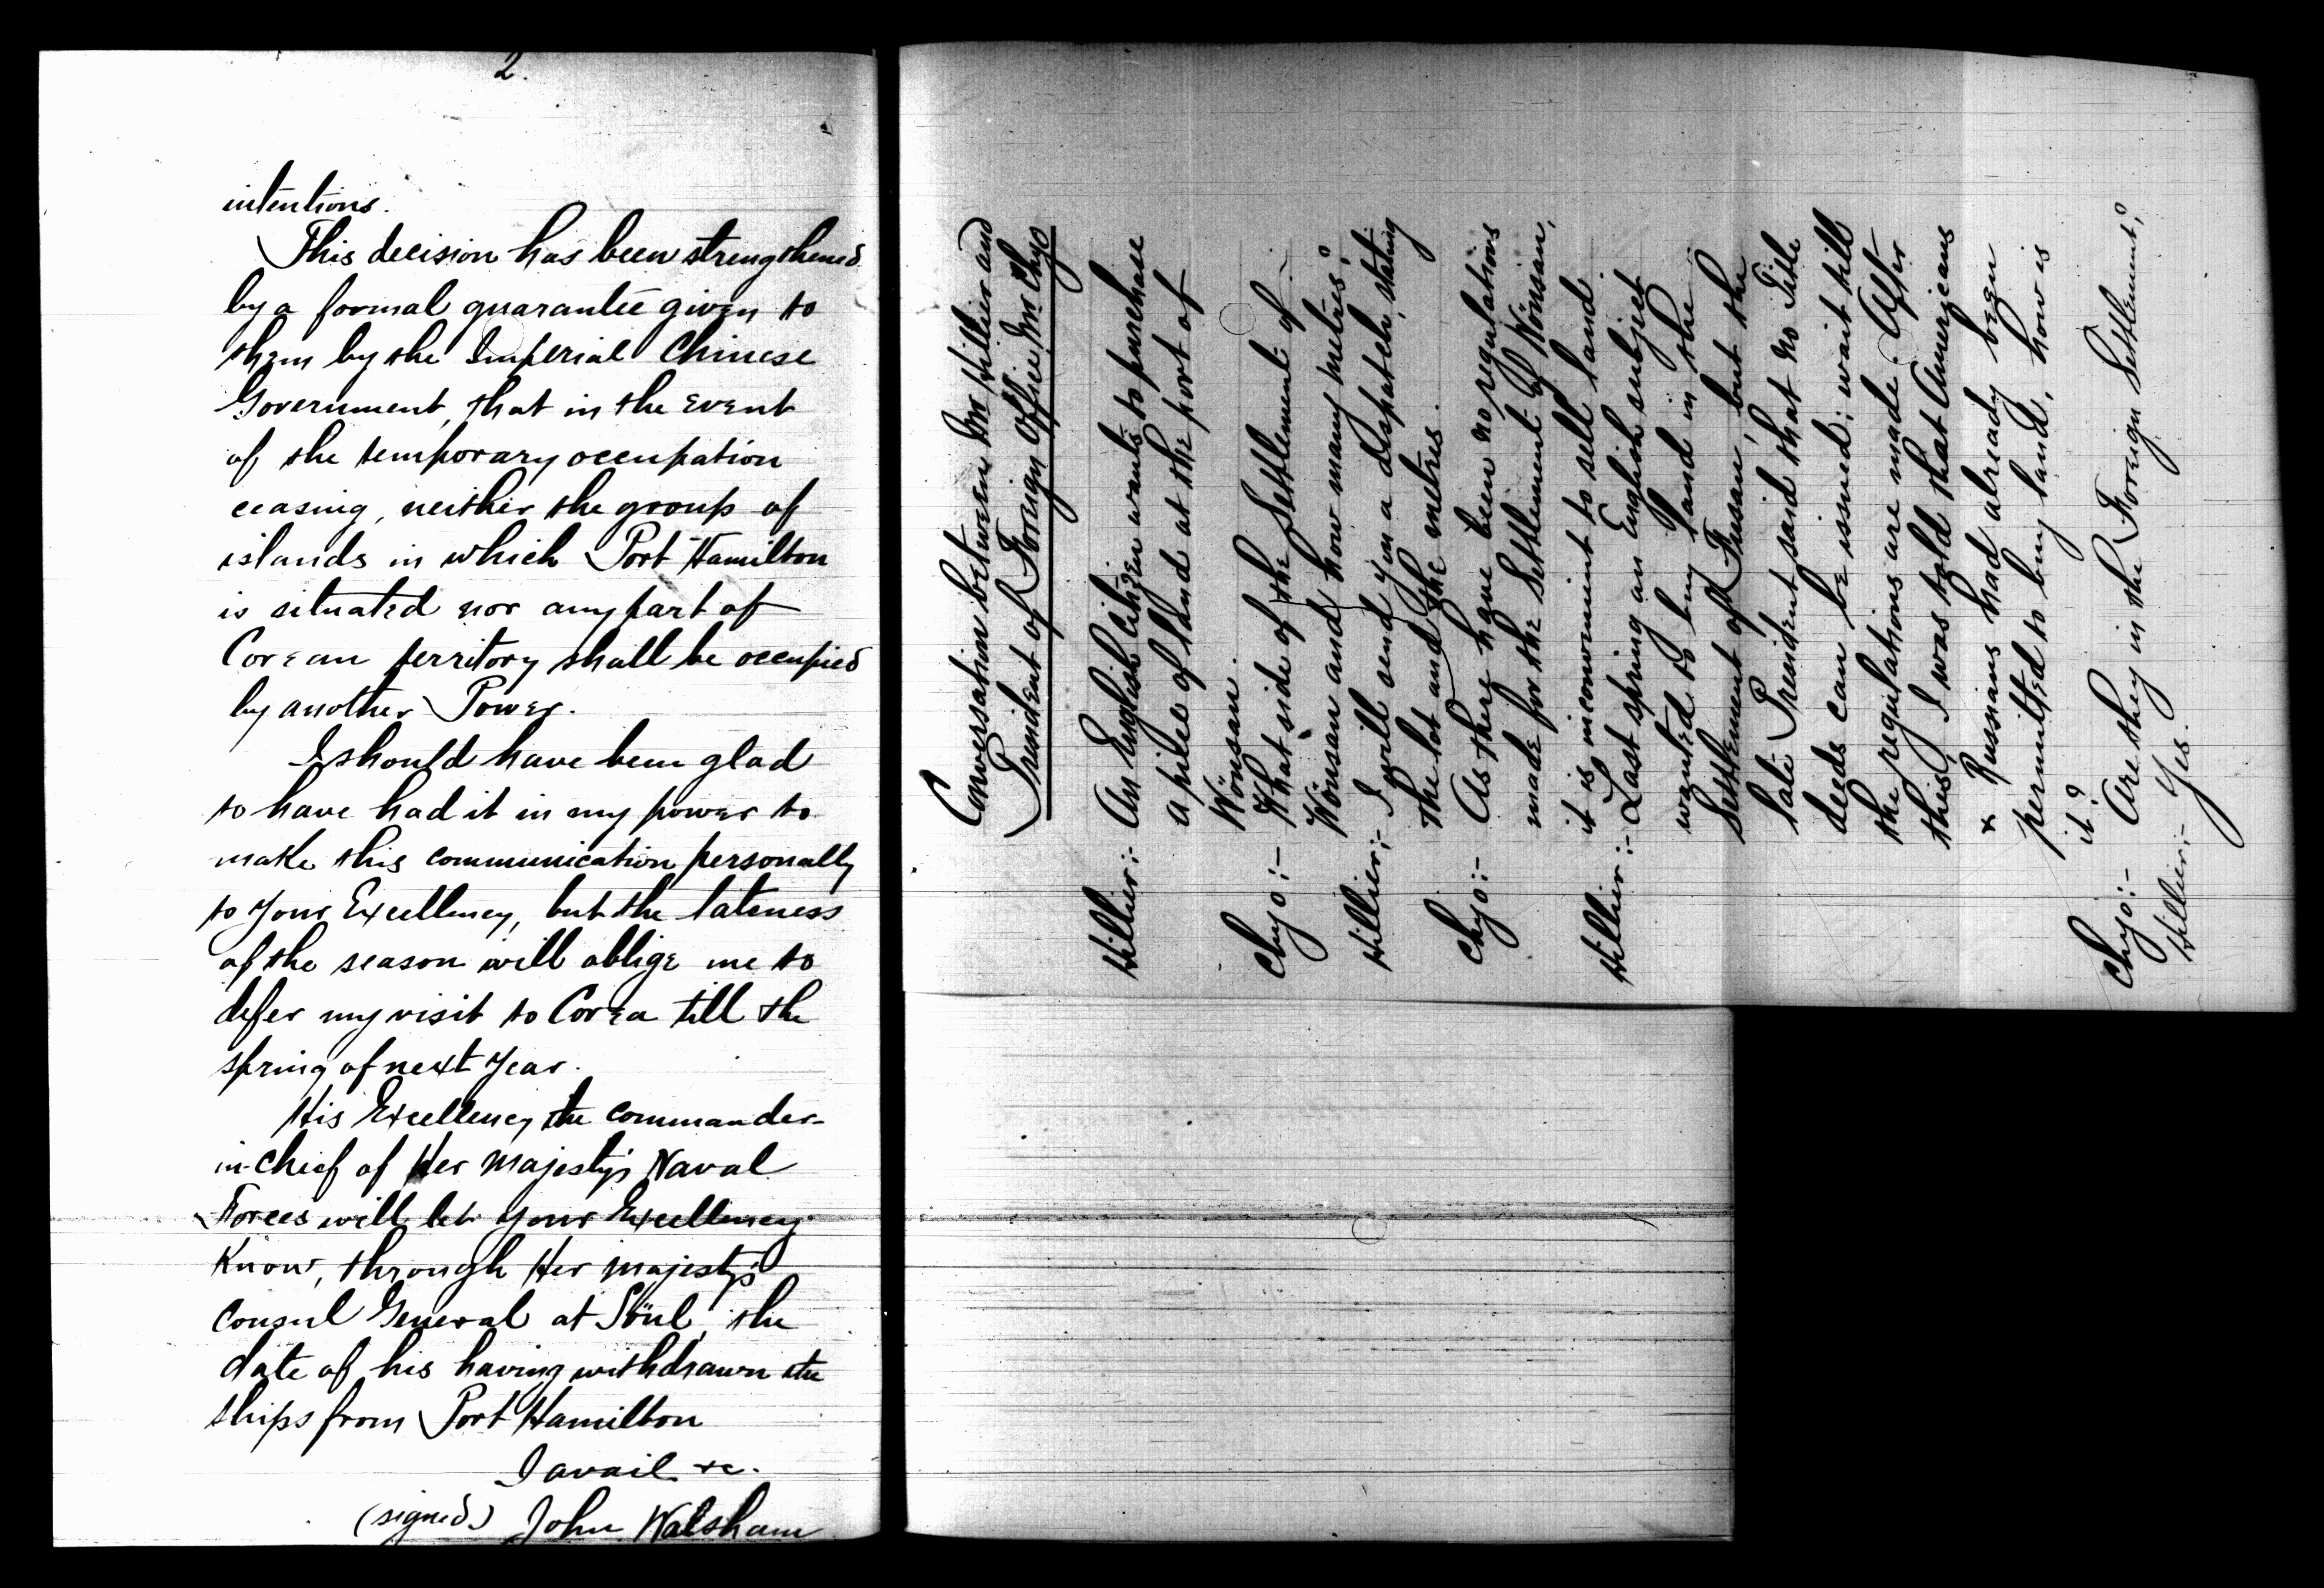 2.
intentions.
This decision has been strengthened
by a formal guarantee given to
them by the Imperial Chinese
Government, that in the event
of the temporary occupation
ceasing, neither the group of
islands in which Port Hamilton
is situated nor any part of
Corean territory shall be occupied
by another Power.
I should have been glad
to have had it in my power to
make this communication personally
to Your Excellency, but the lateness
of the season will oblige me to
defer my visit to Corea till the
spring of next year.
His Excellency the Commander-
in-Chief of Her Majesty's Naval
Forces will let Your Excellency
know, through Her Majesty's
Consul General at Söul, the
date of his having withdrawn the
ships from Port Hamilton
I avail &c.
(signed) John Walsham
Conversation between Mr Hillier and
President of Foreign Office, Mr Chyo
Hillier:- An English Citizen wants to purchase
a piece of land at the port of
Wönsan.
Chyo:- What side of the Settlement of
Wönsan and how many metres?
Hillier:- I will send you a despatch, stating
the lot and the metres.
Chyo:- As there have been no regulations
made for the Settlement of Wönsan,
it is inconvenient to sell land
Hillier:- Last spring an English subject
wanted to buy land in the
Settlement of Fusan, but the
late President said that no Title
deeds can be issued; wait till
the regulations are made. After
this, I was told that Americans
& Russians had already been
permitted to buy land, how is
it?
Chyo:- Are they in the Foreign Settlement?
Hillier:- Yes.